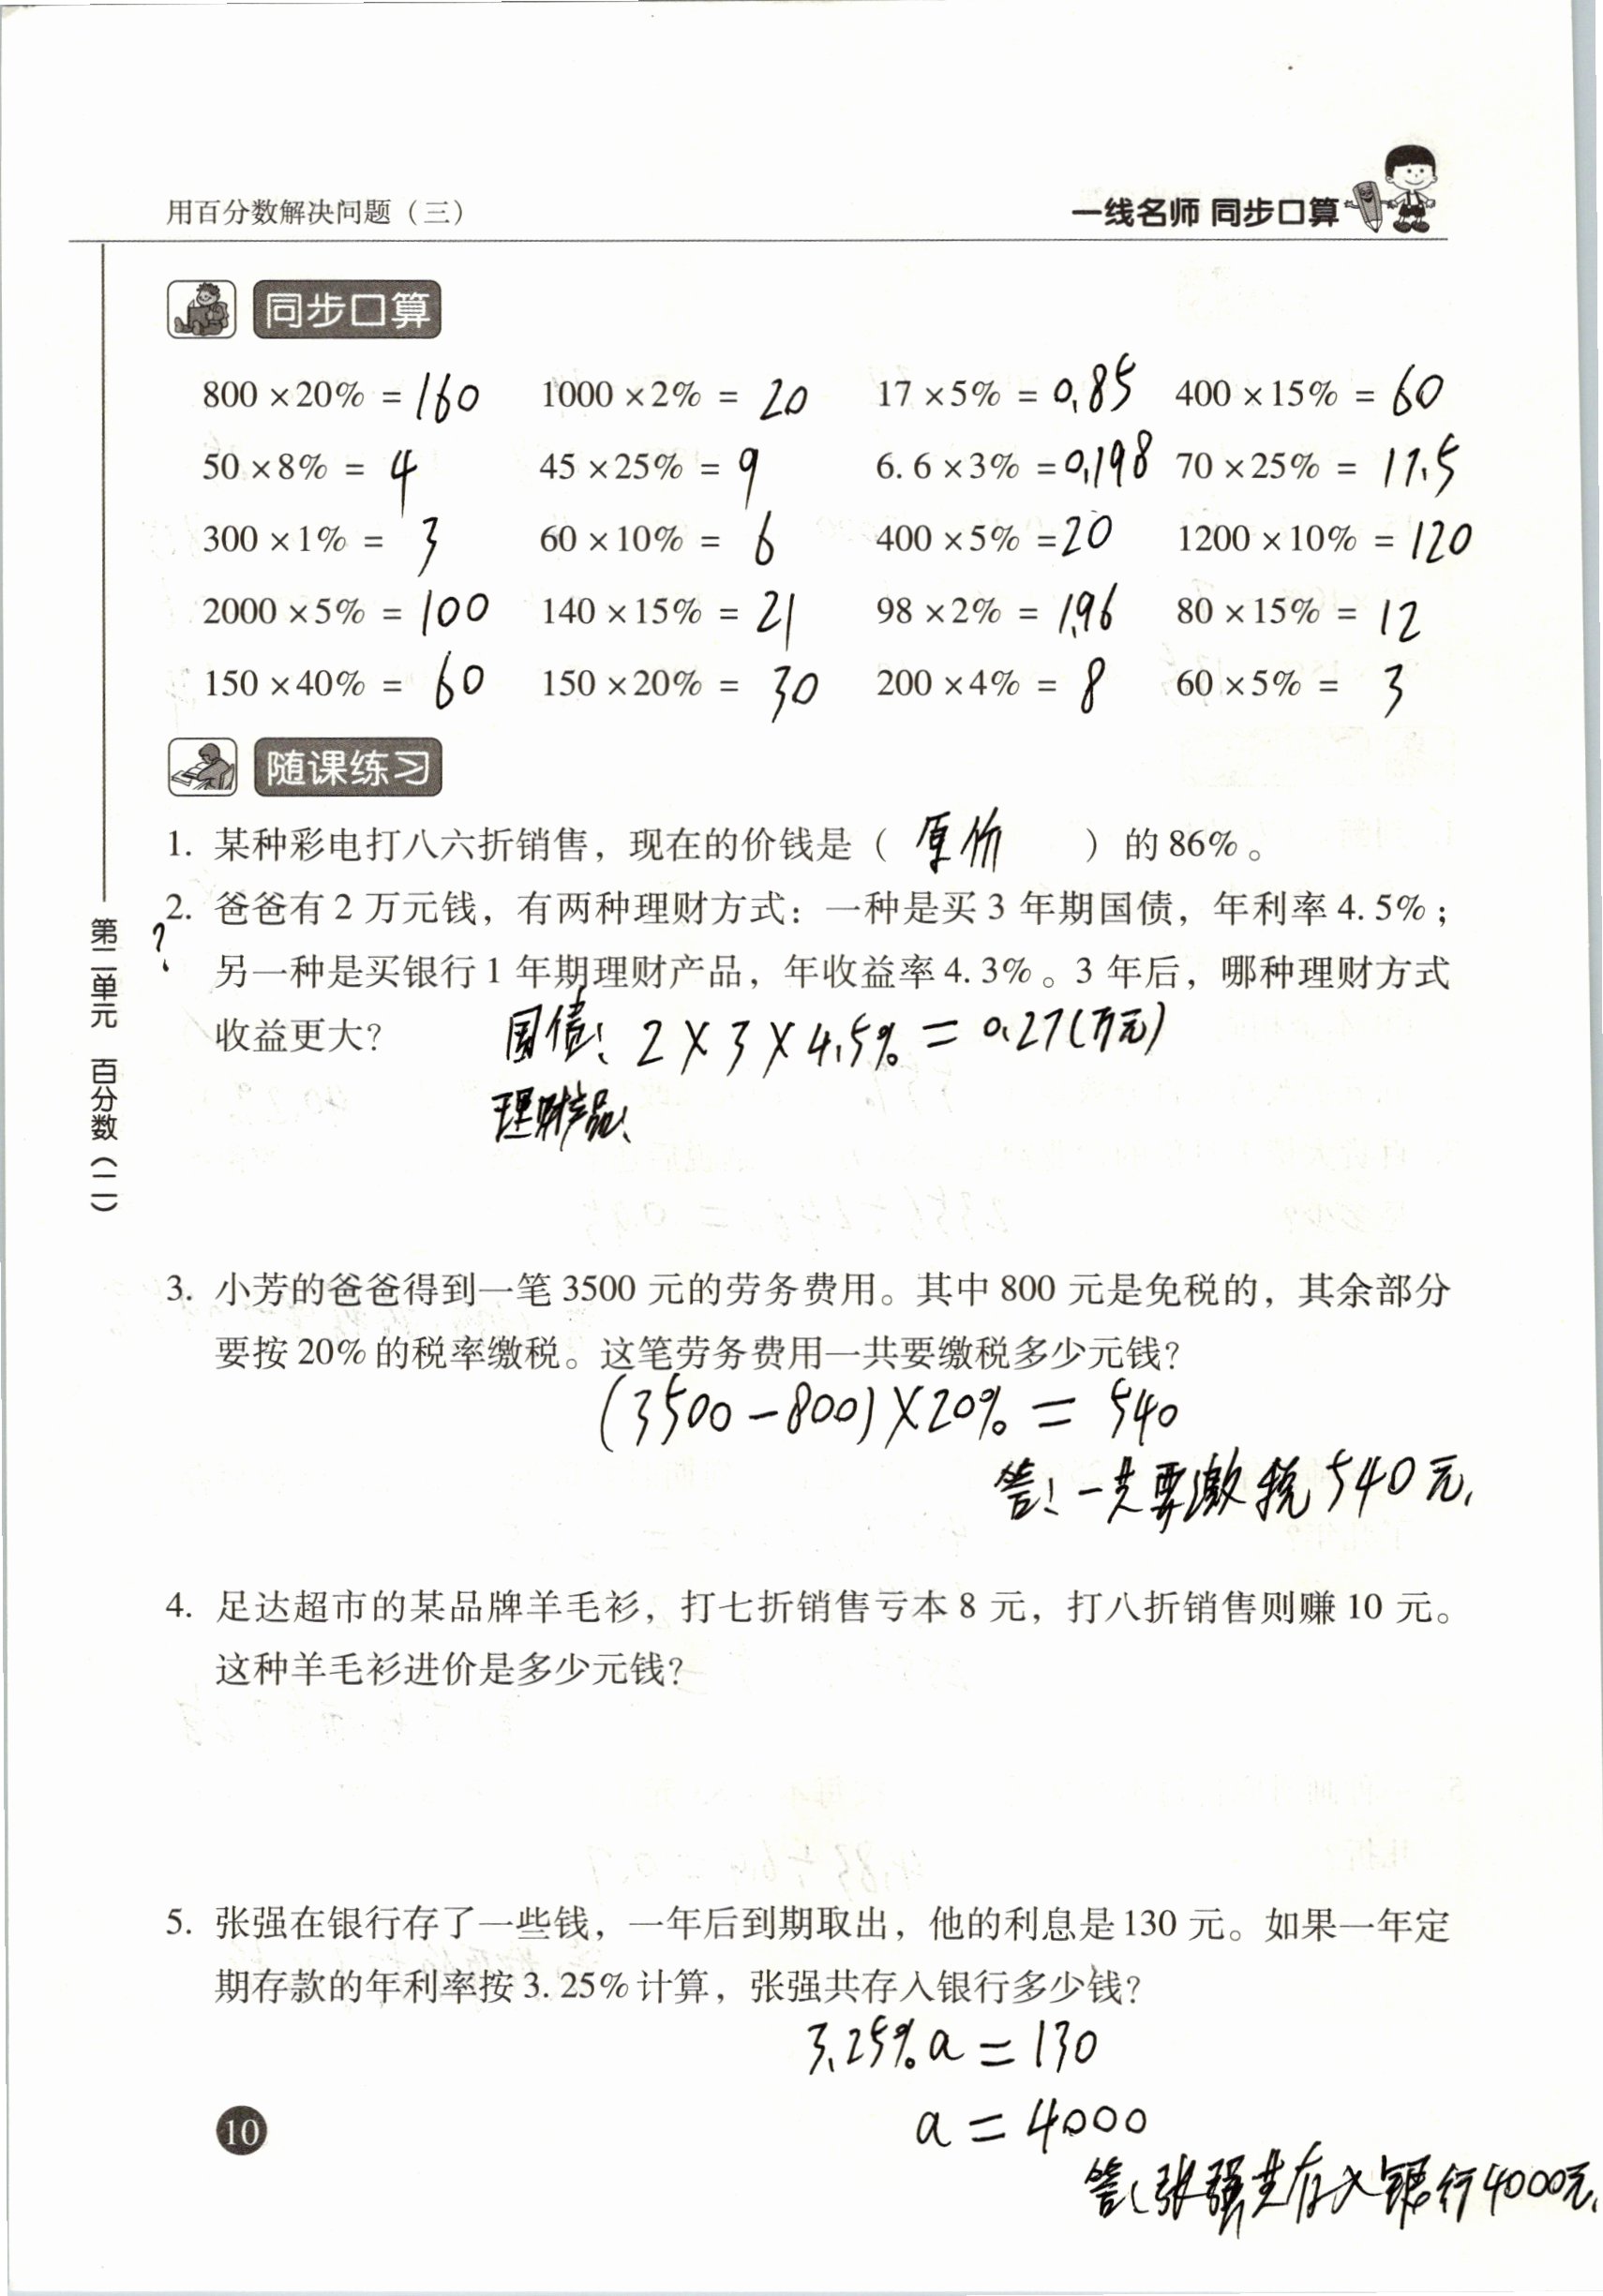 用百分数解决问题（三）
一线名师 同步口算
同步口算
800×20% = 160 1000×2% = 20 17×5% = 0.85 400×15% = 60
50×8% = 4 45×25% = 9 6.6×3% = 0.198 70×25% = 17.5
300×1% = 3 60×10% = 6 400×5% = 20 1200×10% = 120
2000×5% = 100 140×15% = 21 98×2% = 1.96 80×15% = 12
150×40% = 60 150×20% = 30 200×4% = 8 60×5% = 3
随课练习
1. 某种彩电打八六折销售，现在的价钱是（ 原价 ）的86%。
2. 爸爸有2万元钱，有两种理财方式：一种是买3年期国债，年利率4.5%；
?
另一种是买银行1年期理财产品，年收益率4.3%。3年后，哪种理财方式
收益更大？
国债: 2×3×4.5% = 0.27(万元)
理财产品:
3. 小芳的爸爸得到一笔3500元的劳务费用。其中800元是免税的，其余部分
要按20%的税率缴税。这笔劳务费用一共要缴税多少元钱？
(3500-800)×20% = 540
答: 一共要缴税540元.
4. 足达超市的某品牌羊毛衫，打七折销售亏本8元，打八折销售则赚10元。
这种羊毛衫进价是多少元钱？
5. 张强在银行存了一些钱，一年后到期取出，他的利息是130元。如果一年定
期存款的年利率按3.25%计算，张强共存入银行多少钱？
3.25%a = 130
a = 4000
答: 张强共存入银行4000元.
第二单元 百分数（二）
10